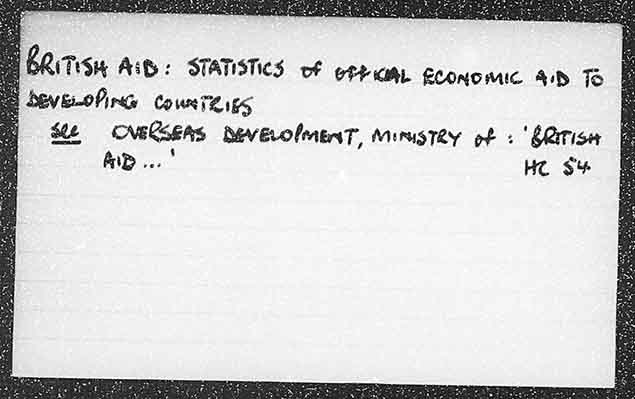 BRITISH AID: STATISTICS of OFFICIAL ECONOMIC AID TO
DEVELOPING COUNTRIES
see OVERSEAS DEVELOPMENT, MINISTRY of: 'BRITISH
AID...'
HC 54